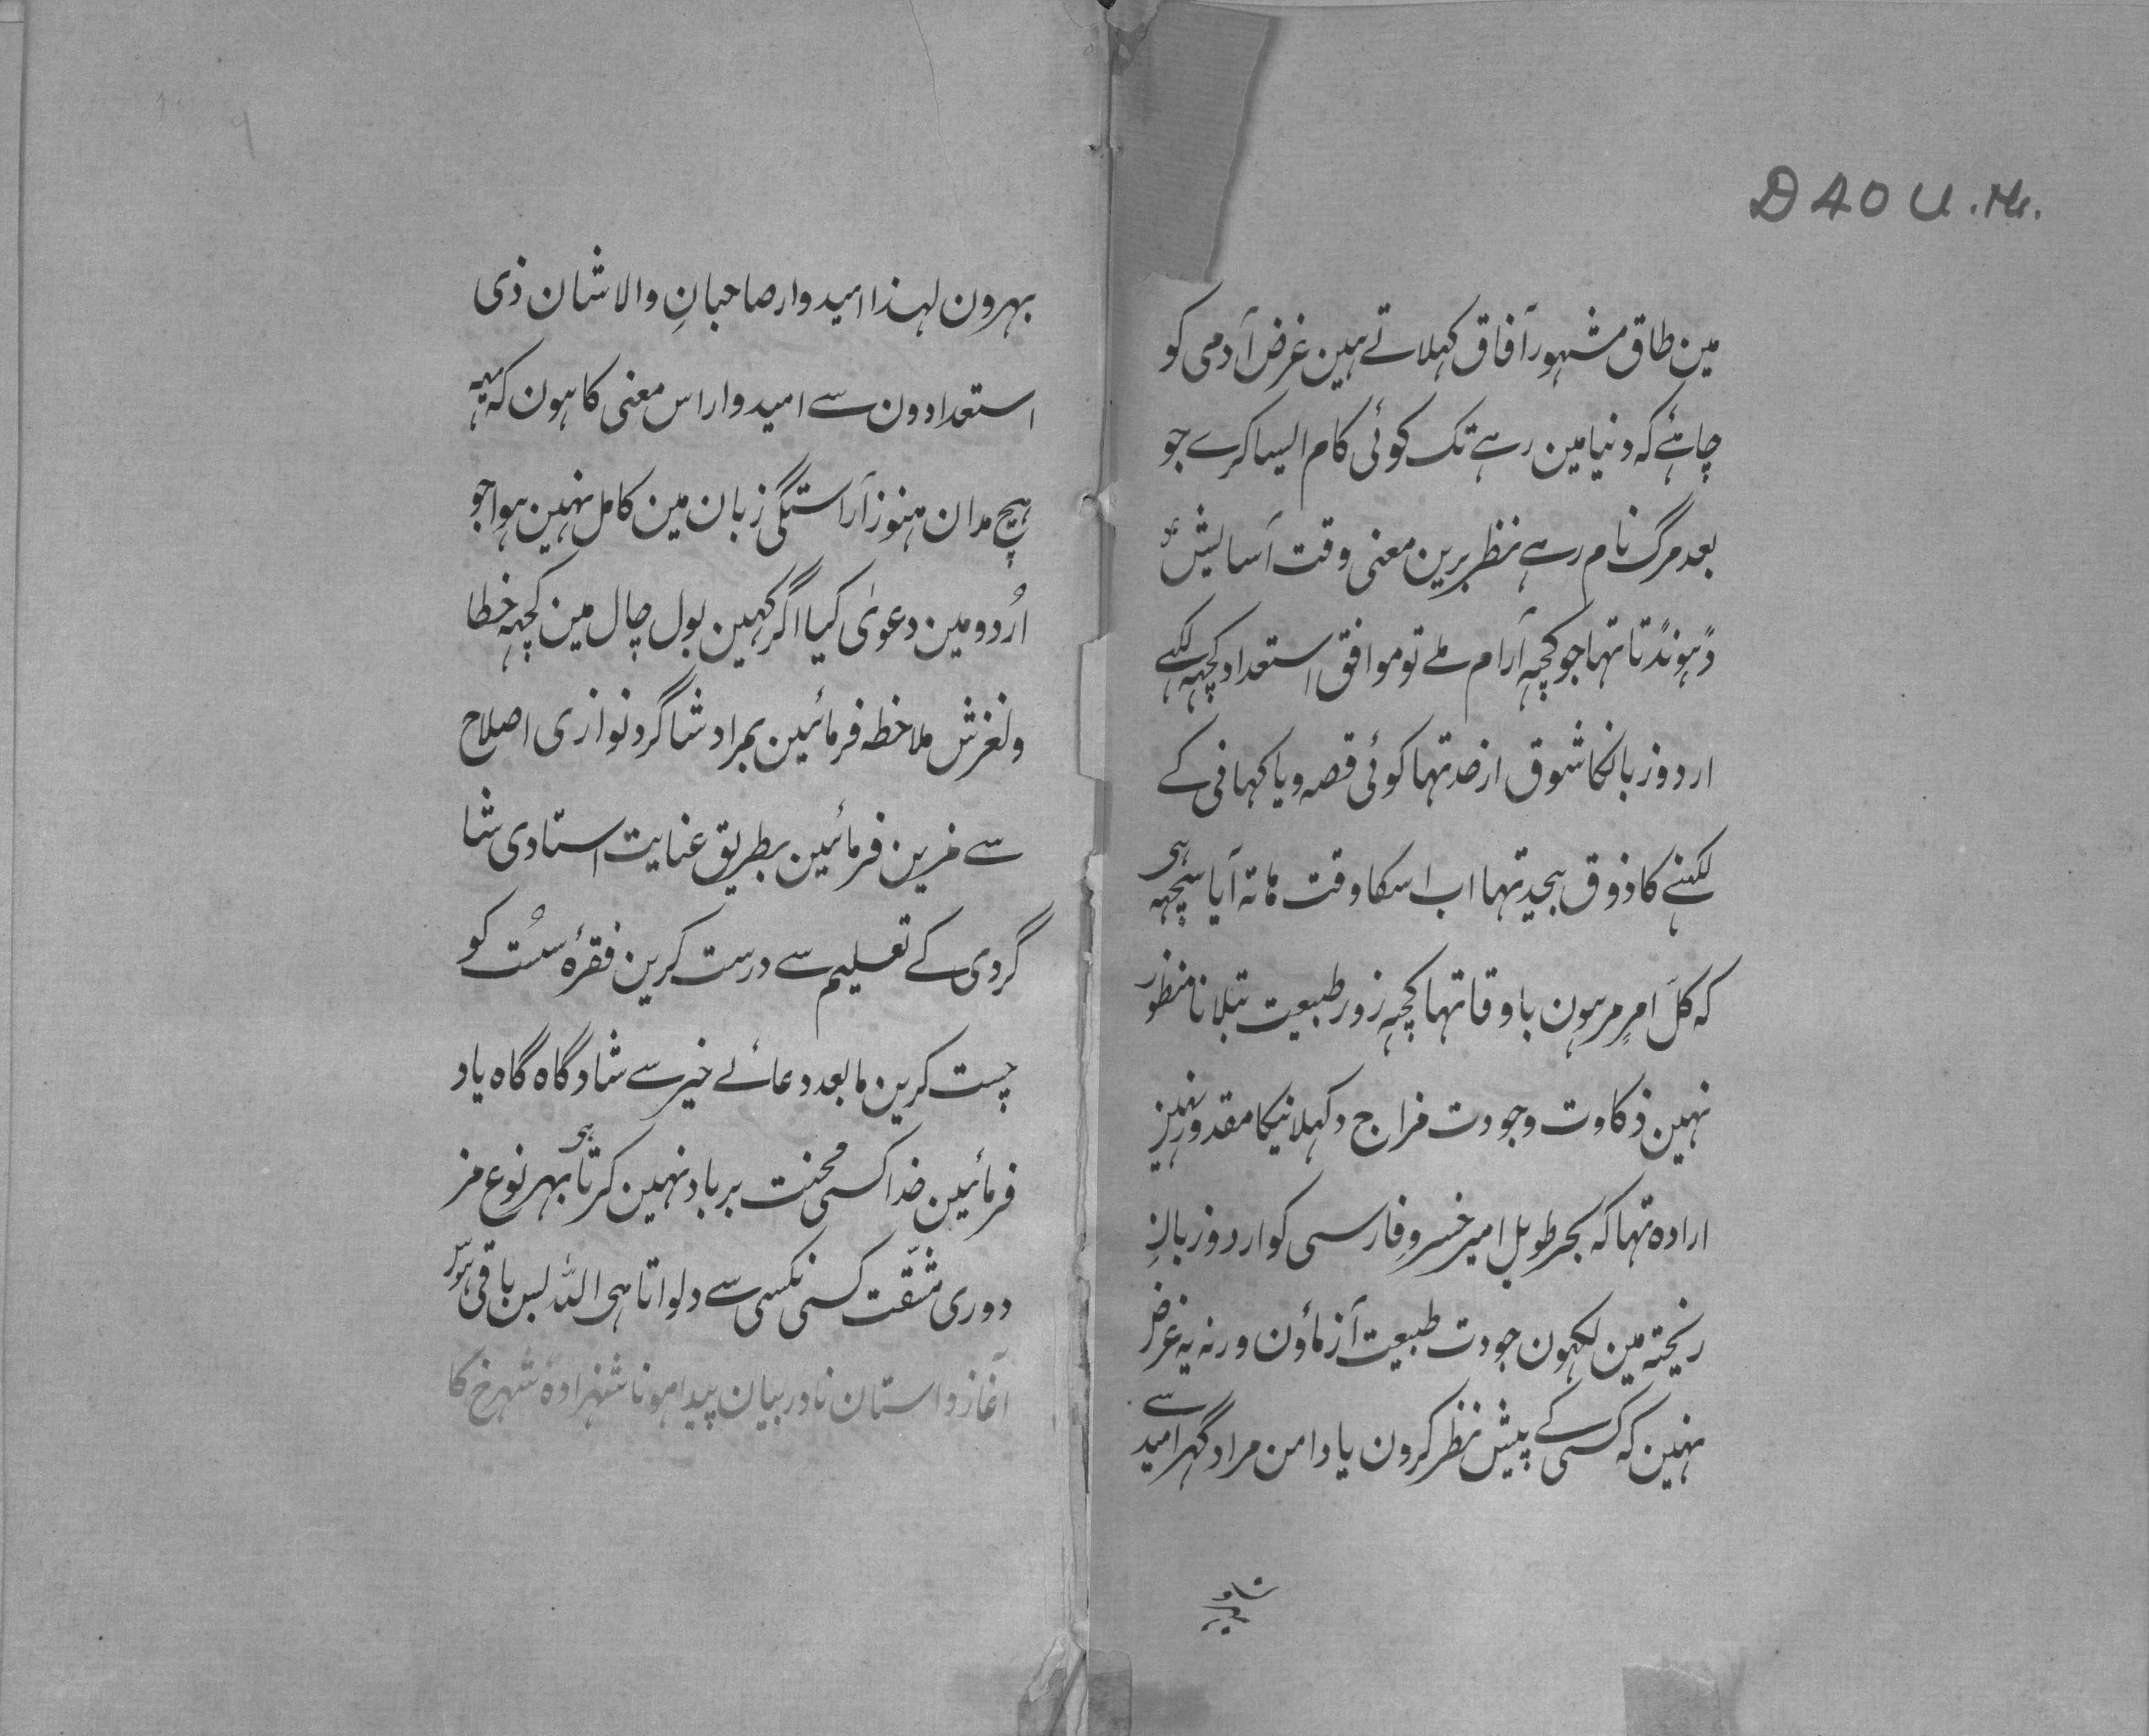 DAOU.Ms.
مین طاق مشہور آفاق کہلاتے ہین غرض آدمی کو
چاہئے کہ دنیا مین رہے تک کوئی کام ایسا کرے جو
بعد مرگ نام رہے نظر برین معنی وقت آسایش
ڈہونڈتا تہا جو کچہہ آرام ملے تو موافق استعداد کچہہ لکہے
اردو زبانکا شوق ازحد تہا کوئی قصہ و یا کہانی کے
لکہنے کا ذوق بیحد تہا اب اسکا وقت ہاتہ آیا سچہہ ہی
کہ کلَ امرٍ مرہون باوقاتہا کچہہ زور طبیعت بتلانا منظور
نہین ذکاوت وجودت مزاج دکہلانیکا مقدور نہین
ارادہ تہا کہ بحر طویل امیر خسروِ فارسی کو اردو زبانِ
ریختہ مین لکہون جودت طبیعت آزماؤن ورنہ یہ غرض
نہین کہ کسی کے پیش نظر کرون یا دامن مراد گہر امید سے
بہرون
بہرون لہذا امیدوار صاحبانِ والا شان ذی
استعدادون سے امیدوار اس معنی کا ہون کہ یہہ
ہیچمدان ہنوز آراستگی زبان مین کامل نہین ہوا جو
اُردو مین دعویٰ کیا اگر کہین بول چال مین کچہہ خطا
ولغزش ملاخطہ فرمائین بمراد شاگرد نوازی اصلاح
سے مزین فرمائین بطریق عنایت استادی شا
گردی کے تعلیم سے درست کرین فقرۂ سُست کو
چست کرین مابعد دعائے خیر سے شاد گاہ گاہ یاد
فرمائین خدا کسی محنت برباد نہین کرتا ہی بہر نوع مز
دوری مشقّت کسی نکسی سے دلواتا ہی اللہ بس باقی ہوس
آغاز داستان نادر بیان پیدا ہونا شہزادۂ شہرخ کا